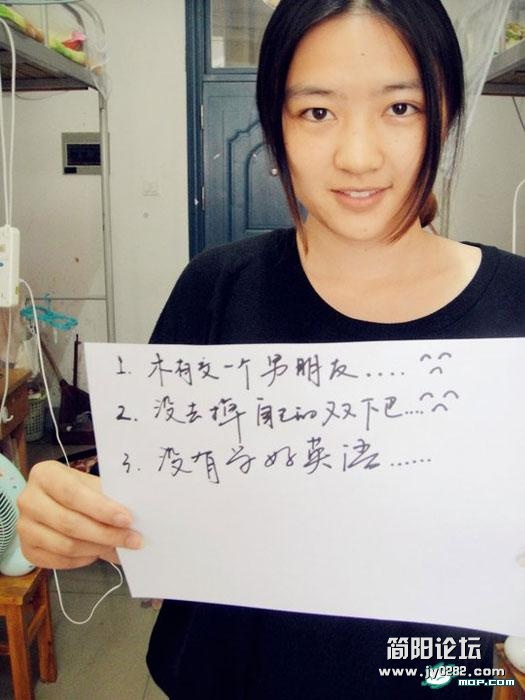 1. 木有交一个男朋友.....
2. 没去掉自己的双下巴....
3. 没有学好英语......
简阳论坛
www.jy0282.com
MOP.COM